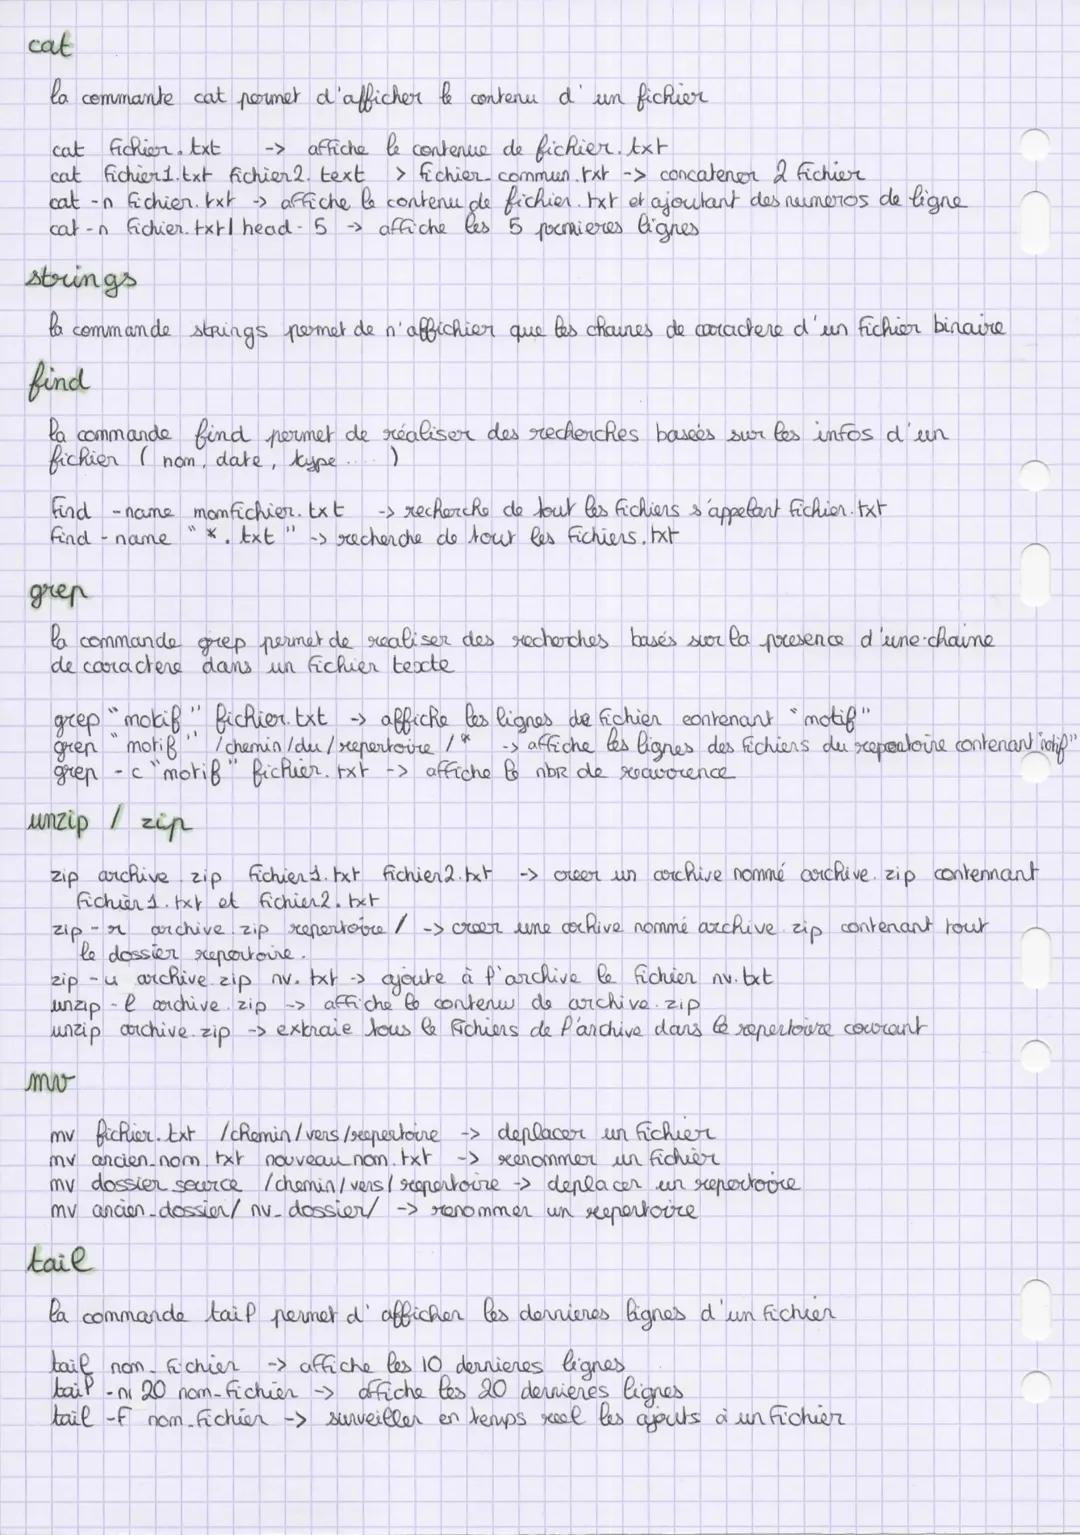 cat
la commante cat permet d'afficher le contenu d'un fichier
cat fichier.txt -> affiche le contenue de fichier.txt
cat fichier1.txt fichier2.text > fichier_commun.txt -> concatener 2 fichier
cat -n fichier.txt -> affiche le contenu de fichier.txt et ajoutant des numeros de ligne
cat -n fichier.txt | head -5 -> affiche les 5 premieres lignes
strings
la commande strings permet de n'affichier que les chaines de caractere d'un fichier binaire
find
la commande find permet de réaliser des recherches baseés sur les infos d'un
fichier ( nom, date, type .... )
find -name monfichier.txt -> recherche de tout les fichiers s'appelant fichier.txt
find -name "*.txt" -> recherche de tout les fichiers.txt
grep
la commande grep permet de realiser des recherches basés sur la presence d'une chaine
de caractere dans un fichier texte
grep "motif" fichier.txt -> affiche les lignes de fichier contenant "motif"
grep "motif" /chemin/du/repertoire/* -> affiche les lignes des fichiers du repertoire contenant "motif"
grep -c "motif" fichier.txt -> affiche le nbr de
unzip / zip
zip archive.zip fichier1.txt fichier2.txt -> creer un archive nommé archive.zip contennant
fichier1.txt et fichier2.txt
zip -r archive.zip repertoire/ -> creer une archive nommé archive.zip contenant tout
le dossier repertoire.
zip -u archive.zip nv.txt -> ajoute à l'archive le fichier nv.txt
unzip -l archive.zip -> affiche le contenu de archive.zip
unzip archive.zip -> extraie tous le fichiers de l'archive dans le repertoire courant
mv
mv fichier.txt /chemin/vers/repertoire -> deplacer un fichier
mv ancien_nom.txt nouveau_nom.txt -> renommer un fichier
mv dossier_source /chemin/vers/repertoire -> deplacer un repertoire
mv ancien_dossier/ nv_dossier/ -> renommer un repertoire
tail
la commande tail permet d'afficher les dernieres lignes d'un fichier
tail nom_fichier -> affiche les 10 dernieres lignes
tail -n 20 nom_fichier -> affiche les 20 dernieres lignes
tail -f nom_fichier -> surveiller en temps reel les ajouts à un fichier